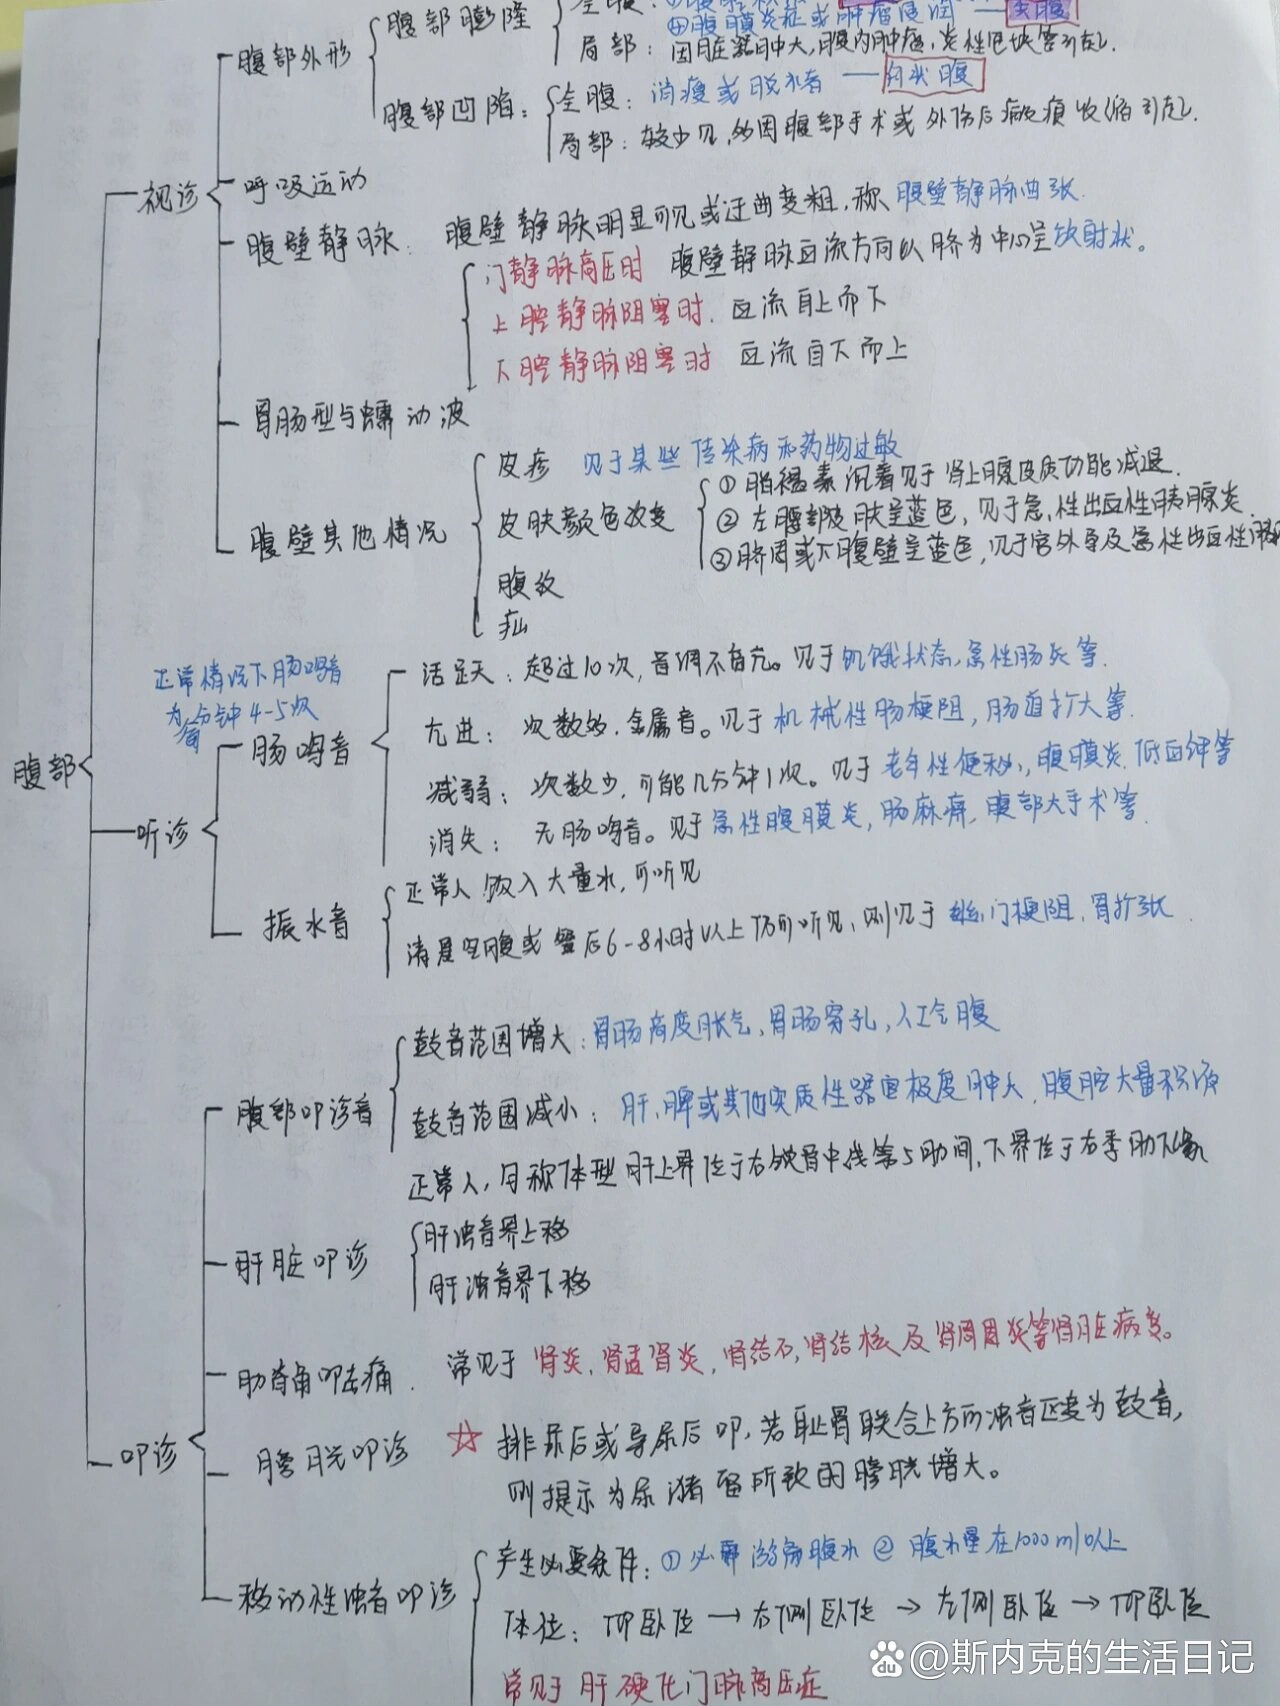 腹部
视诊
腹部外形
腹部膨隆
全腹：
④腹膜炎症或肿瘤浸润 —
局部：因脏器肿大，腹内肿瘤，炎性包块等引起.
腹部凹陷：
全腹：消瘦或脱水者 — 舟状腹
局部：较少见，多因腹部手术或外伤后瘢痕收缩引起.
呼吸运动
腹壁静脉：腹壁静脉明显可见或迂曲变粗，称腹壁静脉曲张.
门静脉高压时 腹壁静脉血流方向以脐为中心呈放射状。
上腔静脉阻塞时. 血流自上而下
下腔静脉阻塞时 血流自下而上
胃肠型与蠕动波
腹壁其他情况
皮疹 见于某些传染病和药物过敏
皮肤颜色改变
① 脂褐素沉着见于肾上腺皮质功能减退.
② 左腰部皮肤呈蓝色，见于急性出血性胰腺炎
③脐周或下腹壁呈蓝色，见于宫外孕及急性出血性
腹纹
疝
听诊
正常情况下肠鸣音
为每分钟4-5次
肠鸣音
活跃：超过10次，音调不高亢。见于饥饿状态，急性肠炎等.
亢进：次数多，金属音。见于机械性肠梗阻，肠道扩大等.
减弱：次数少，可能几分钟1次。见于老年性便秘，腹膜炎，低血钾等
消失：无肠鸣音。见于急性腹膜炎，肠麻痹，腹部大手术等.
振水音
正常人饮入大量水，可听见
清晨空腹或餐后6-8小时以上仍可听见，则见于幽门梗阻，胃扩张
叩诊
腹部叩诊音
鼓音范围增大：胃肠高度胀气，胃肠穿孔，人工气腹
鼓音范围减小：肝、脾或其他实质性器官极度肿大，腹腔大量积液
正常人，匀称体型肝上界位于右锁骨中线第5肋间，下界位于右季肋下缘
肝脏叩诊
肝浊音界上移
肝浊音界下移
肋脊角叩击痛. 常见于肾炎，肾盂肾炎，肾结石，肾结核及肾周围炎等肾脏病变。
膀胱叩诊 ☆ 排尿后或导尿后叩，若耻骨联合上方的浊音区变为鼓音，
则提示为尿潴留所致的膀胱增大。
移动性浊音叩诊
产生必要条件：① 必需游离腹水 ② 腹水量在1000ml以上
体位：仰卧位 → 右侧卧位 → 左侧卧位 → 仰卧位
常见于肝硬化门脉高压症
@斯内克的生活日记